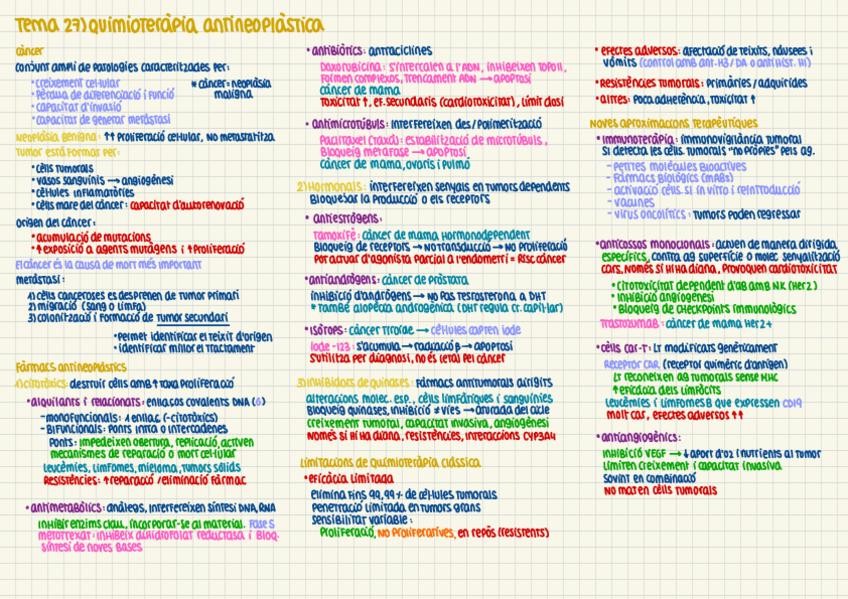 Tema 27) Quimioteràpia antineoplàstica
càncer
conjunt ampli de patologies caracteritzades per:
• creixement cel·lular
• Pèrdua de diferenciació i funció
• capacitat d'invasió
• capacitat de generar metàstasi
* càncer = neoplàsia
maligna
Neoplàsia benigna: ↑↑ proliferació cel·lular, no metastatitza
Tumor està format per:
• cèls tumorals
• vasos sanguinis → angiogènesi
• cèl·lules inflamatòries
• cèl·ls mare del càncer: capacitat d'autorenovació
origen del càncer:
• acumulació de mutacions
• ↑ exposició a agents mutàgens i ↑ proliferació
El càncer és la causa de mort més important
metàstasi:
1) cèls canceroses es desprenen de tumor primari
2) migració (sang o limfa)
3) colonització i formació de tumor secundari
• Permet identificar el teixit d'origen
• identificar millor el tractament
Fàrmacs antineoplàstics
1) citotòxics: destruir cèl·ls amb ↑ taxa proliferació
• alquilants i relacionats: enllaços covalents DNA
– monofuncionals: 1 enllaç (- citotòxics)
– Bifuncionals: Ponts intra o intercadenes
Ponts: impedeixen obertura, replicació, activen
mecanismes de reparació o mort cel·lular
Leucèmies, limfomes, mieloma, tumors sòlids
Resistències: ↑ reparació / eliminació fàrmac
• antimetabòlits: anàlegs, interfereixen síntesi DNA, RNA
Inhibir enzims clau, incorporar-se al material. Fase S
metotrexat: inhibeix dihidrofolat reductasa i Bloq.
síntesi de noves bases
• antibiòtics: antraciclines
Doxorubicina: s'intercalen a l'ADN, inhibeixen topo II,
Formen complexos, trencament ADN → apoptosi
càncer de mama
Toxicitat ↑, ef. secundaris (cardiotoxicitat), límit dosi
• antimicrotúbuls: interfereixen des/polimerització
Paclitaxel (taxol): estabilització de microtúbuls,
Bloqueig metafase → apoptosi
càncer de mama, ovaris i pulmó
2) Hormonals: interfereixen senyals en tumors dependents
Bloquejar la producció o els receptors
• antiestrògens:
Tamoxifè: càncer de mama hormonodependent
Bloqueig de receptors → No transducció → No proliferació
Pot actuar d'agonista parcial a l'endometri = Risc càncer
• antiandrògens: càncer de pròstata
inhibició d'andrògens → no pas testosterona a DHT
* també alopècia androgènica (DHT regula cr. capil·lar)
• isòtops: càncer tiroide → cèl·lules capten iode
Iode-123: s'acumula → radiació β → apoptosi
S'utilitza per diagnosi, no és letal pel càncer
3) Inhibidors de quinases: Fàrmacs antitumorals dirigits
alteracions molec. esp., cèl·ls limfàtiques i sanguínies
Bloqueig quinases, inhibició ≠ vies → aturada del cicle
creixement tumoral, capacitat invasiva, angiogènesi
Només si hi ha diana, resistències, interaccions CYP3A4
Limitacions de quimioteràpia clàssica
• eficàcia limitada
Elimina fins 99,99% de cèl·lules tumorals
Penetració limitada en tumors grans
Sensibilitat variable:
Proliferació, no proliferatives, en repòs (resistents)
• efectes adversos: afectació de teixits, nàusees i
vòmits (control amb ant. H3/DA o antihist. H1)
• Resistències tumorals: Primàries / adquirides
• altres: Poca adherència, toxicitat ↑
Noves aproximacions terapèutiques
• immunoteràpia: immunovigilància tumoral
Si detecta les cèl·ls. tumorals "no pròpies" pels ag.
– Petites molècules bioactives
– Fàrmacs biològics (mABs)
– activació cèl·ls. SI in vitro i reintroducció
– vacunes
– virus oncolítics: tumors poden regressar
• anticossos monoclonals: actuen de manera dirigida,
específics, contra ag superfície o molec senyalització
cars, només si hi ha diana, provoquen cardiotoxicitat
• citotoxicitat dependent d'ab amb NK (Her2)
• Inhibició angiogènesi
• Bloqueig de checkpoints immunològics
Trastuzumab: càncer de mama Her2+
• cèl·ls car-t: Lt modificats genèticament
Receptor CAR (receptor quimèric d'antigen)
Lt reconeixen ag tumorals sense MHC
↑ eficàcia dels limfòcits
Leucèmies i limfomes B que expressen CD19
molt car, efectes adversos ↑↑
• antiangiogènics:
inhibició VEGF → ↓ aport d'O2 i nutrients al tumor
Limiten creixement i capacitat invasiva
Sovint en combinació
No maten cèl·ls tumorals